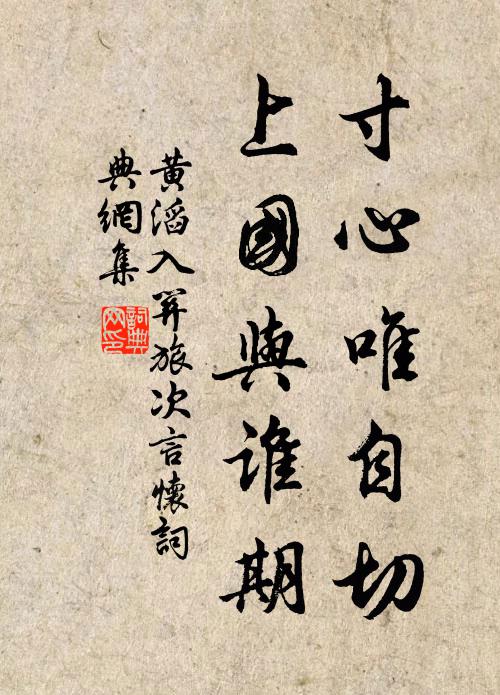 寸心唯自切
上國與誰期
黃滔入關旅次言懷詞
典網集
詞典
網印